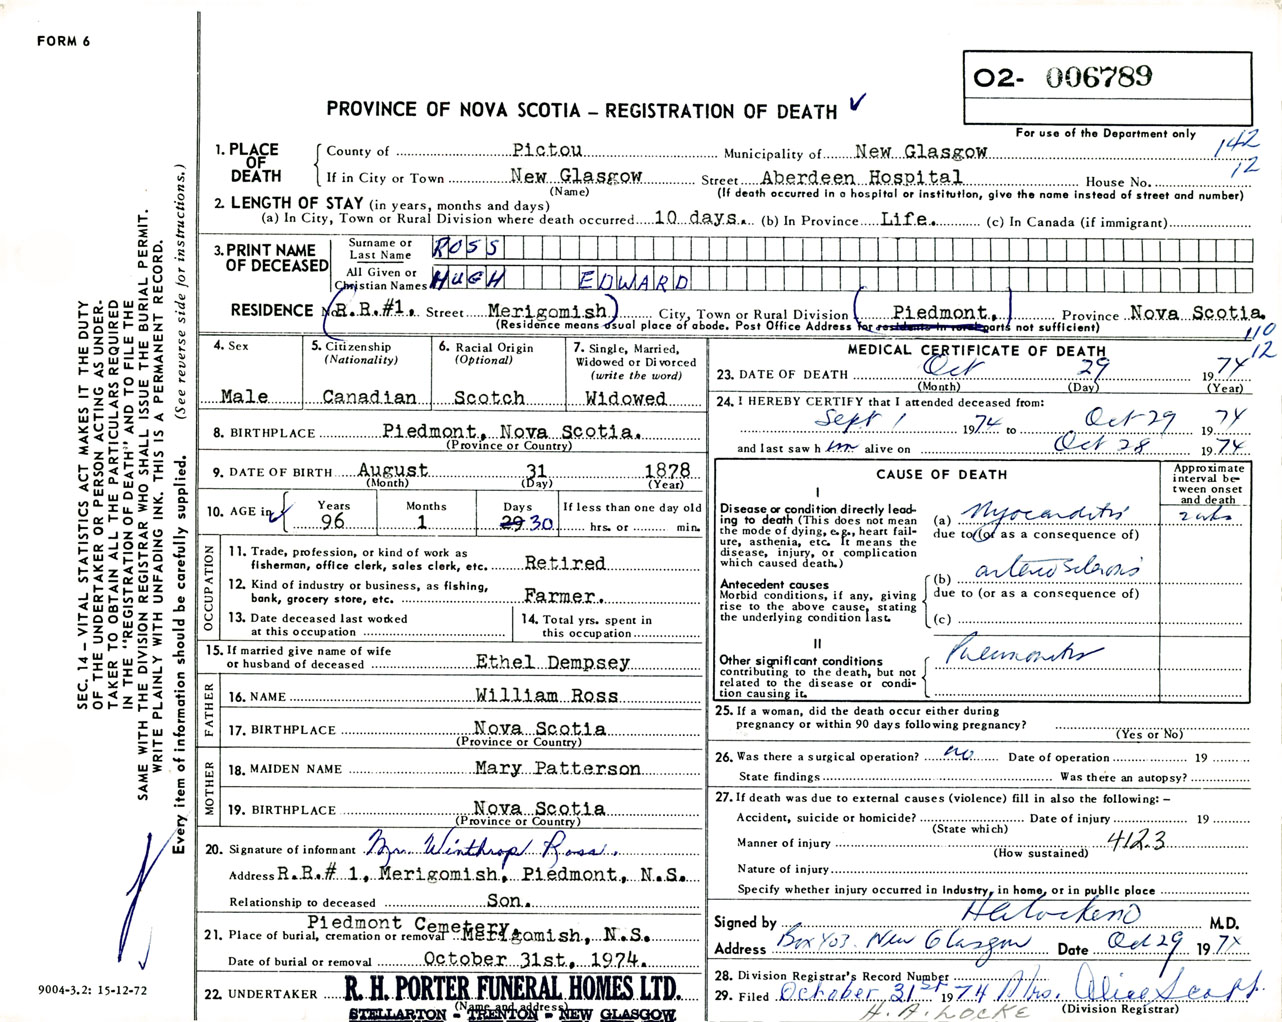 FORM 6
O2- 006789
PROVINCE OF NOVA SCOTIA – REGISTRATION OF DEATH ✓
For use of the Department only
142
12
1. PLACE OF DEATH
County of Pictou Municipality of New Glasgow
If in City or Town New Glasgow Street Aberdeen Hospital House No.
(Name) (If death occurred in a hospital or institution, give the name instead of street and number)
2. LENGTH OF STAY (in years, months and days)
(a) In City, Town or Rural Division where death occurred 10 days. (b) In Province Life. (c) In Canada (if immigrant)
3. PRINT NAME OF DECEASED
Surname or Last Name ROSS
All Given or Christian Names HUGH EDWARD
RESIDENCE No. R.R.#1. Street Merigomish City, Town or Rural Division Piedmont, Province Nova Scotia.
(Residence means usual place of abode. Post Office Address for residents in rural parts not sufficient)
110
12
4. Sex
Male
5. Citizenship
(Nationality)
Canadian
6. Racial Origin
(Optional)
Scotch
7. Single, Married, Widowed or Divorced
(write the word)
Widowed
8. BIRTHPLACE Piedmont, Nova Scotia.
(Province or Country)
9. DATE OF BIRTH August 31 1878
(Month) (Day) (Year)
10. AGE in ✓
Years 96
Months 1
Days 29 30
If less than one day old
hrs. or min.
OCCUPATION
11. Trade, profession, or kind of work as fisherman, office clerk, sales clerk, etc. Retired
12. Kind of industry or business, as fishing, bank, grocery store, etc. Farmer.
13. Date deceased last worked at this occupation
14. Total yrs. spent in this occupation
15. If married give name of wife or husband of deceased Ethel Dempsey
FATHER
16. NAME William Ross
17. BIRTHPLACE Nova Scotia
(Province or Country)
MOTHER
18. MAIDEN NAME Mary Patterson
19. BIRTHPLACE Nova Scotia
(Province or Country)
20. Signature of informant Mr. Winthrop Ross.
Address R.R.# 1, Merigomish, Piedmont, N.S.
Relationship to deceased Son.
Piedmont Cemetery,
21. Place of burial, cremation or removal Merigomish, N.S.
Date of burial or removal October 31st, 1974.
22. UNDERTAKER R. H. PORTER FUNERAL HOMES LTD.
(Name and address)
STELLARTON - TRENTON - NEW GLASGOW
MEDICAL CERTIFICATE OF DEATH
23. DATE OF DEATH Oct 29 1974
(Month) (Day) (Year)
24. I HEREBY CERTIFY that I attended deceased from:
Sept 1 1974 to Oct 29 1974
and last saw h im alive on Oct 28 1974
CAUSE OF DEATH
Approximate interval between onset and death
I
Disease or condition directly leading to death (This does not mean the mode of dying, e.g., heart failure, asthenia, etc. It means the disease, injury, or complication which caused death.)
(a) Myocarditis 2 wks
due to (or as a consequence of)
Antecedent causes
Morbid conditions, if any, giving rise to the above cause, stating the underlying condition last.
(b) arteriosclerosis
due to (or as a consequence of)
(c)
II
Other significant conditions contributing to the death, but not related to the disease or condition causing it.
Pneumonitis
25. If a woman, did the death occur either during pregnancy or within 90 days following pregnancy?
(Yes or No)
26. Was there a surgical operation? no Date of operation 19
State findings Was there an autopsy?
27. If death was due to external causes (violence) fill in also the following: –
Accident, suicide or homicide? Date of injury 19
(State which)
Manner of injury 412.3
(How sustained)
Nature of injury
Specify whether injury occurred in Industry, in home, or in public place
Signed by M.D.
Address Box 403 New Glasgow Date Oct 29 1974
28. Division Registrar's Record Number
29. Filed October 31st 1974 Mrs. Alice Scott.
(Division Registrar)
H. A. LOCKE
SEC. 14 – VITAL STATISTICS ACT MAKES IT THE DUTY
OF THE UNDERTAKER OR PERSON ACTING AS UNDER-
TAKER TO OBTAIN ALL THE PARTICULARS REQUIRED
IN THE "REGISTRATION OF DEATH" AND TO FILE THE
SAME WITH THE DIVISION REGISTRAR WHO SHALL ISSUE THE BURIAL PERMIT.
WRITE PLAINLY WITH UNFADING INK. THIS IS A PERMANENT RECORD.
Every item of information should be carefully supplied. (See reverse side for instructions.)
9004-3.2: 15-12-72